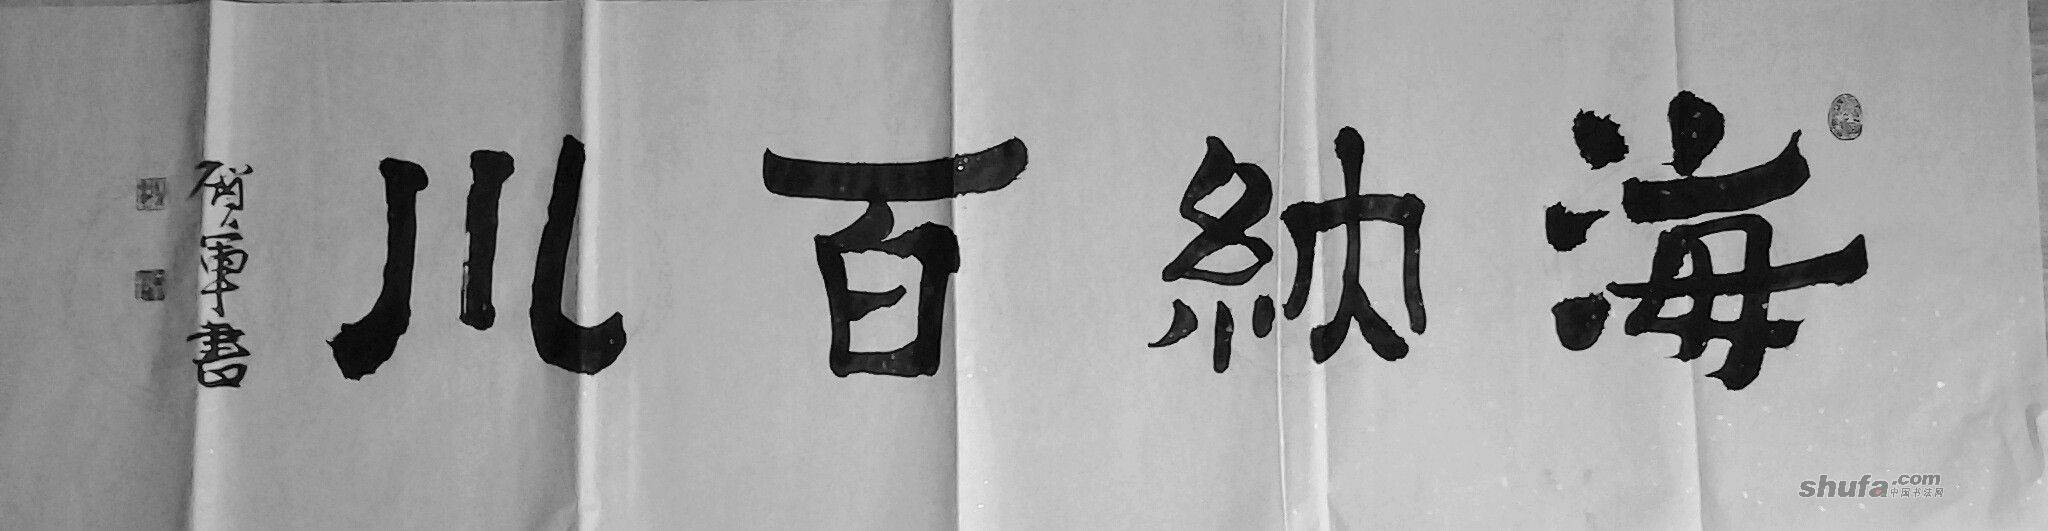 海納百川
軍書
shufa.com
中国书法网